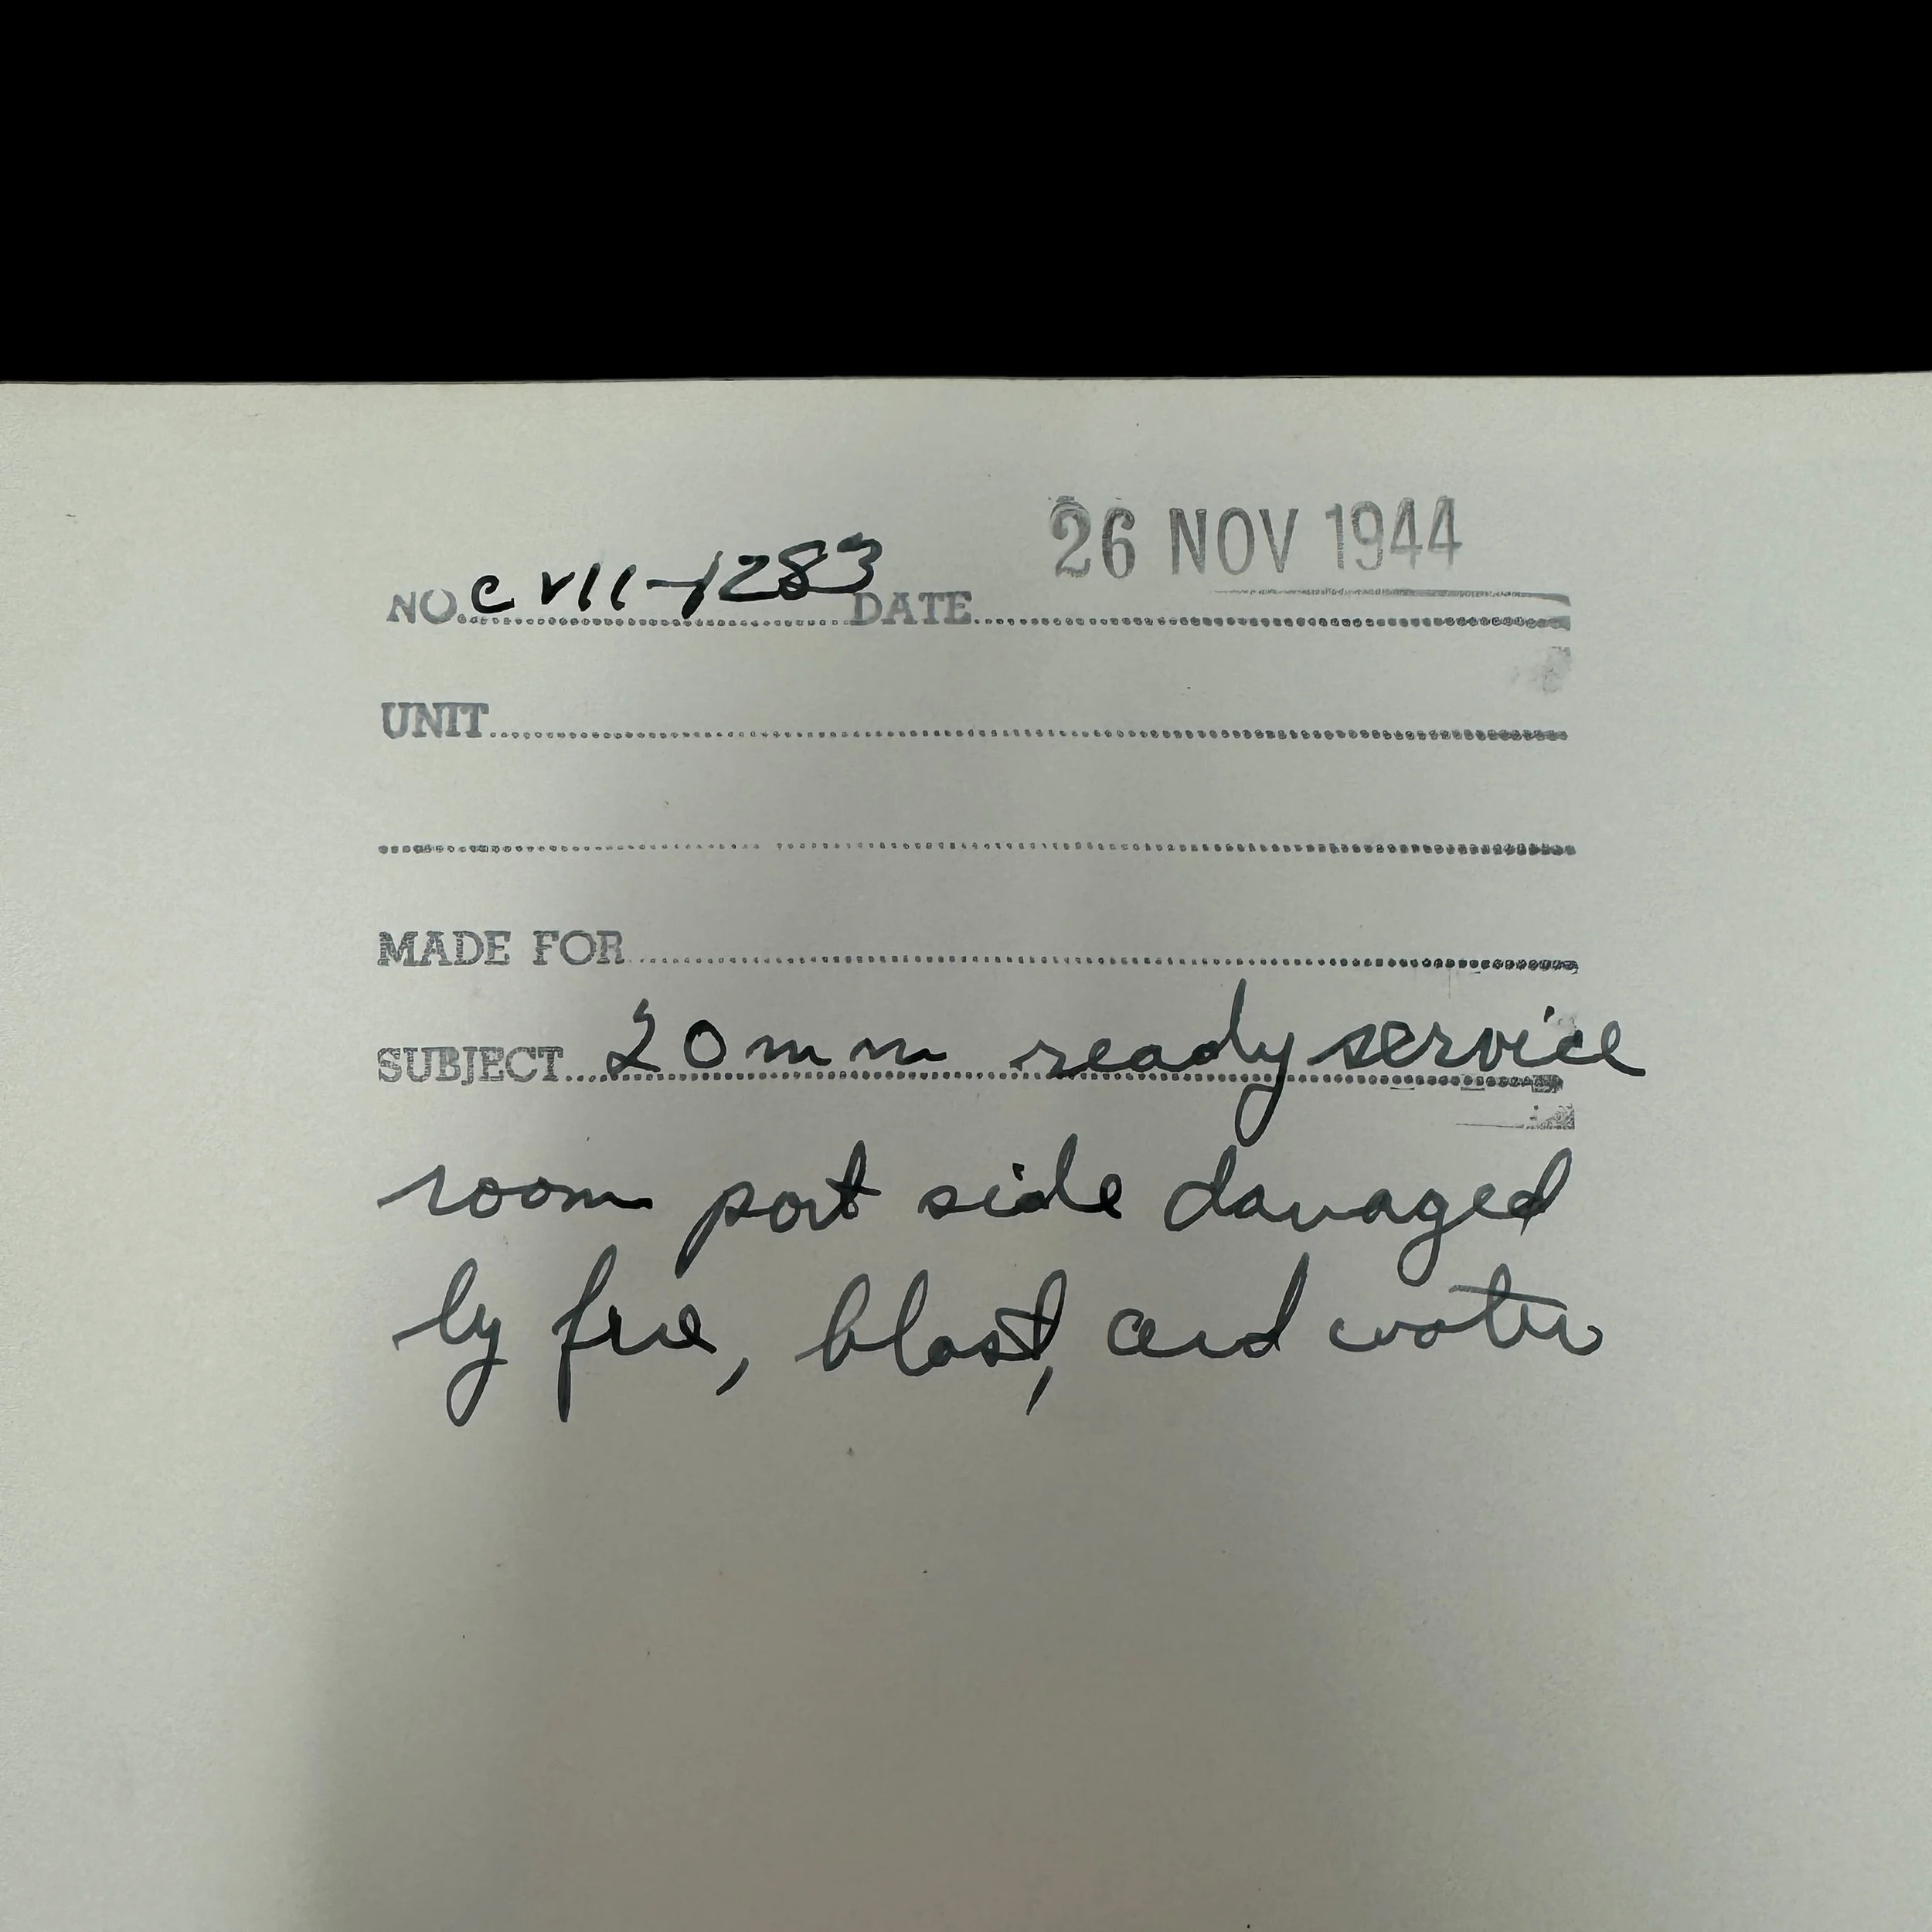 26 NOV 1944
NO. C V11-1283 DATE
UNIT
MADE FOR
SUBJECT 20mm ready service
room port side damaged
by fire, blast, and water